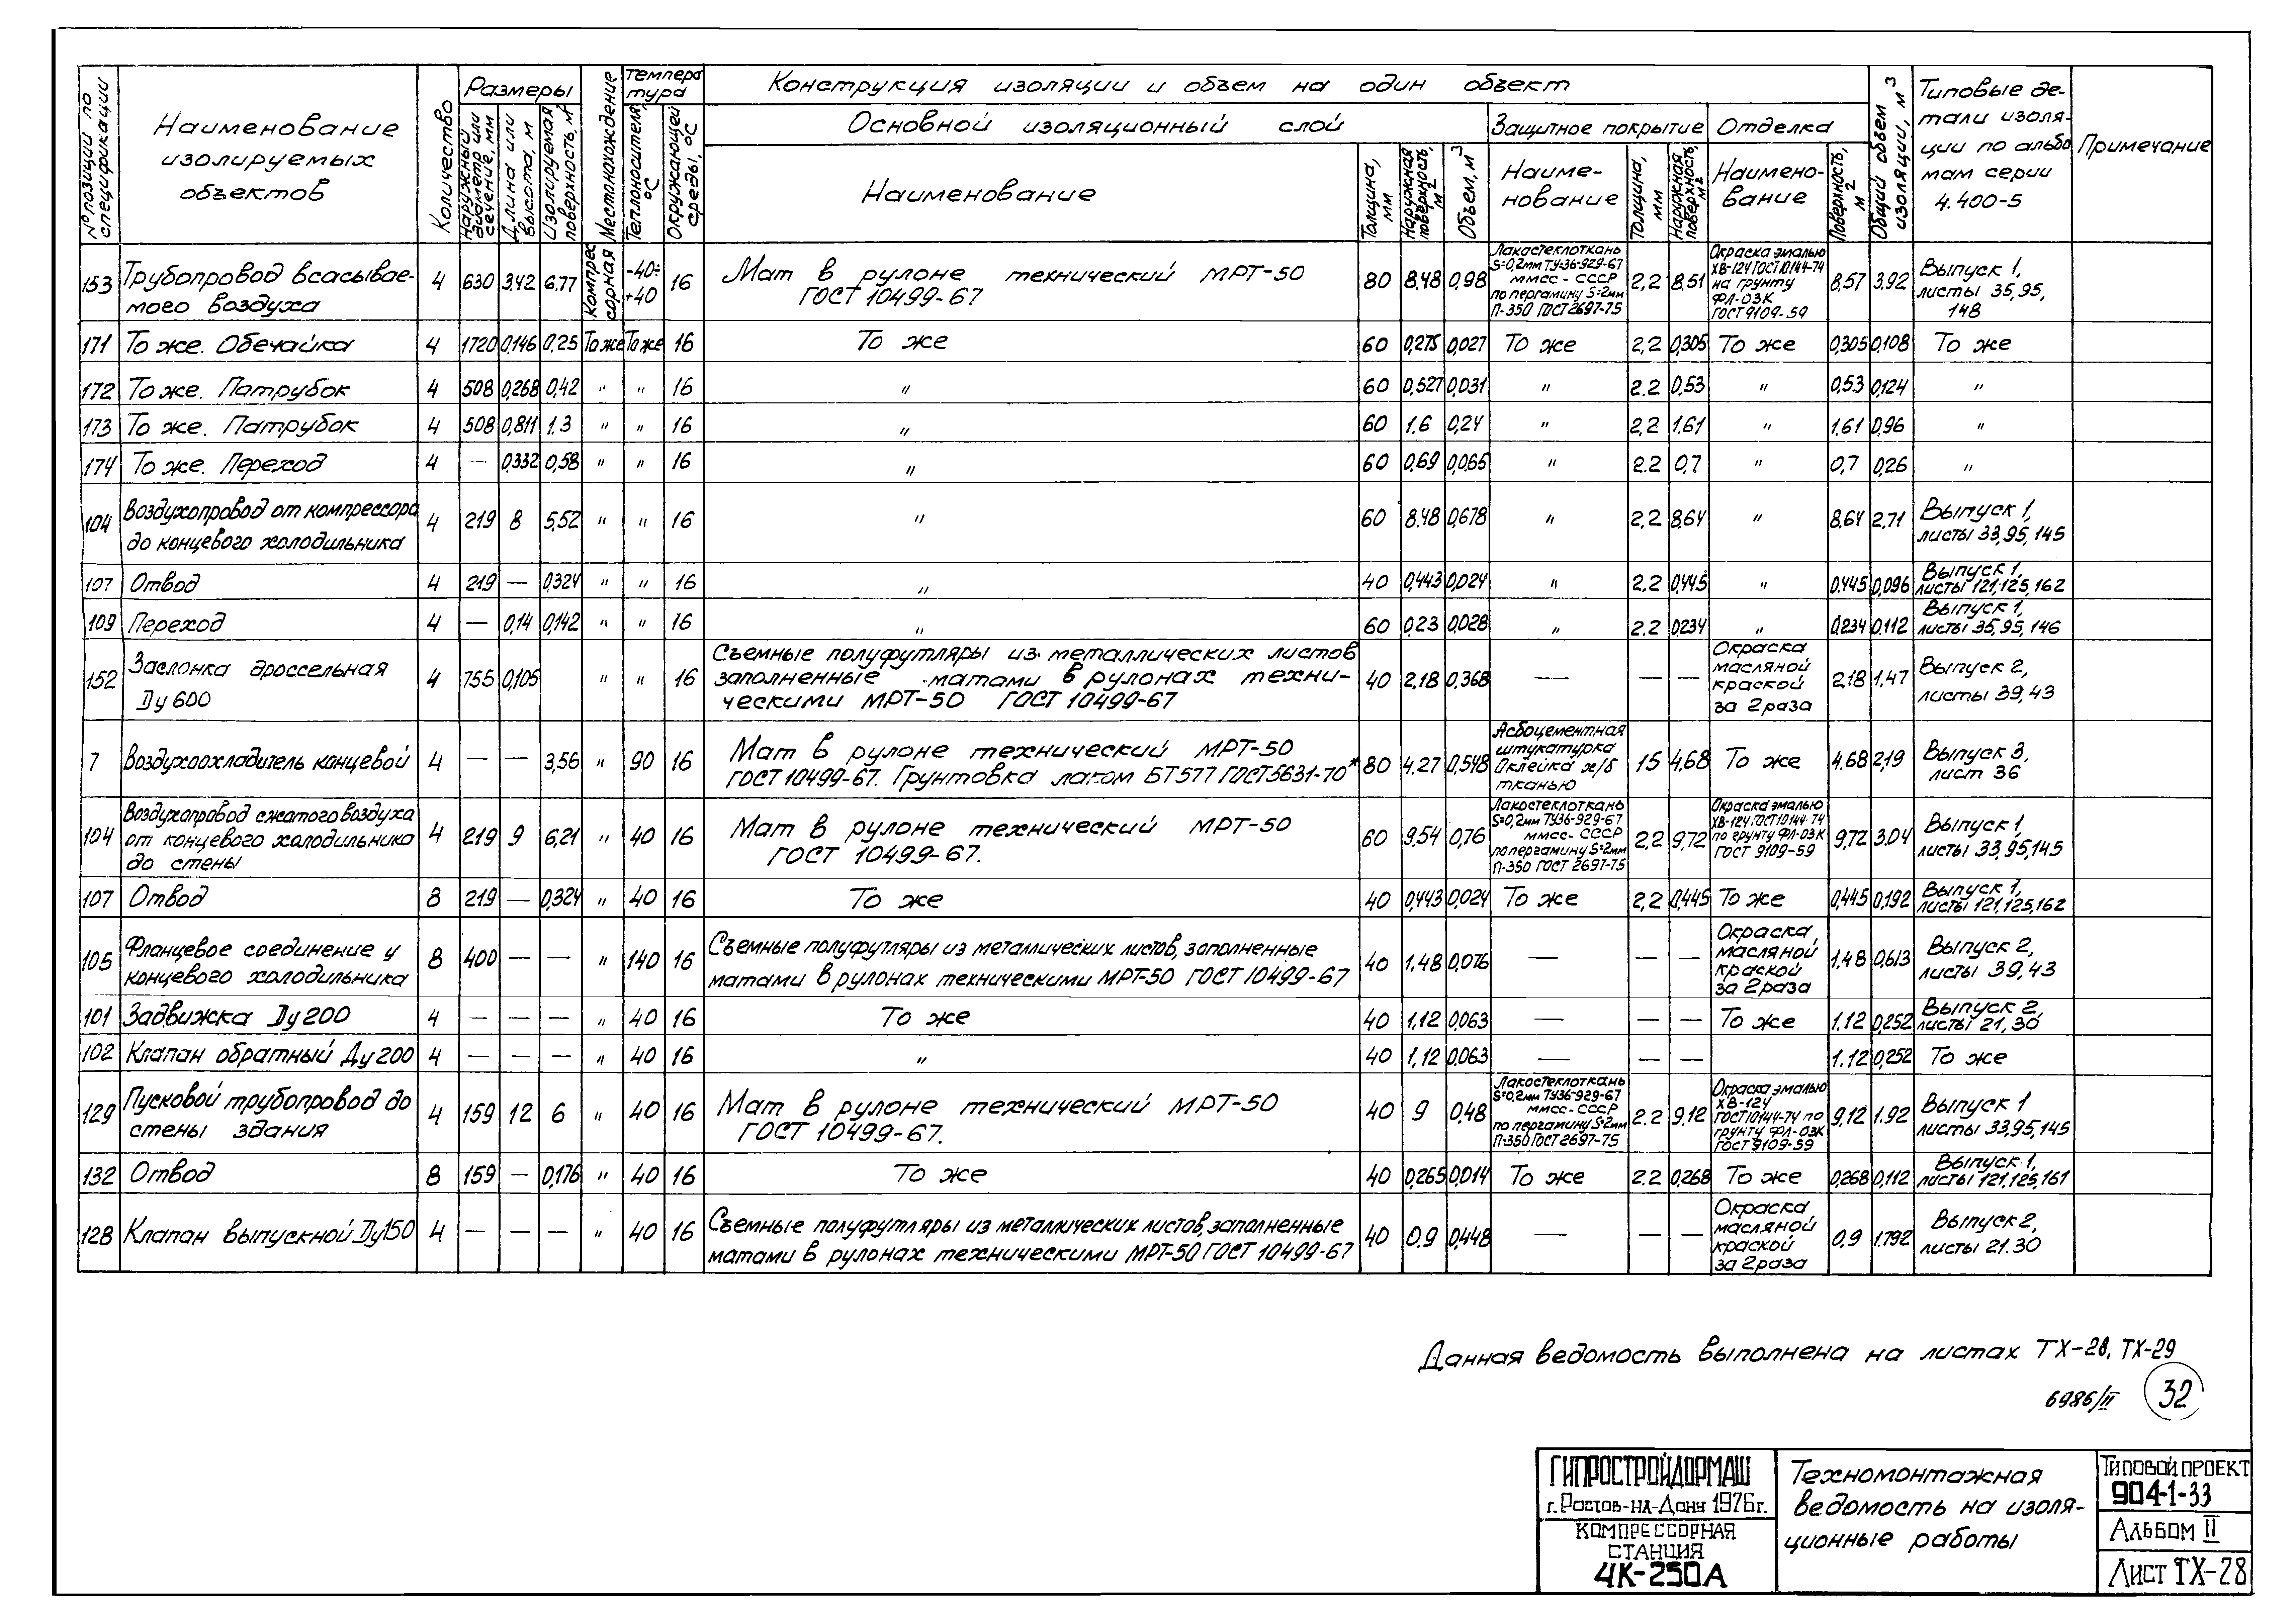 № позиции по спецификации
Наименование изолируемых объектов
Количество
Размеры
Наружный диаметр или сечение, мм
Длина или высота, м
Изолируемая поверхность, м²
Местонахождение
Температура
Теплоносителя, °С
Окружающей среды, °С
Конструкция изоляции и объем на один объект
Основной изоляционный слой
Наименование
Толщина, мм
Наружная поверхность, м²
Объем, м³
Защитное покрытие
Наименование
Толщина, мм
Наружная поверхность, м²
Отделка
Наименование
Поверхность, м²
Общий объем изоляции, м³
Типовые детали изоляции по альбомам серии 4.400-5
Примечание
153 Трубопровод всасываемого воздуха 4 630 3.42 6.77 Компрессорная -40÷+40 16 Мат в рулоне технический МРТ-50 ГОСТ 10499-67 80 8.48 0,98 Лакостеклоткань S=0,2мм ТУ36-929-67 ммсс-СССР по пергамину S=2мм П-350 ГОСТ 2697-75 2.2 8.51 Окраска эмалью ХВ-124 ГОСТ 10144-74 на грунту ФЛ-03К ГОСТ 9109-59 8,57 3,92 Выпуск 1, листы 35,95, 148
171 То же. Обечайка 4 1720 0,146 0.25 То же То же 16 То же 60 0,275 0,027 То же 2,2 0,305 То же 0,305 0,108 То же
172 То же. Патрубок 4 508 0,268 0,42 " " 16 " 60 0,527 0,031 " 2.2 0,53 " 0,53 0,124 "
173 То же. Патрубок 4 508 0,811 1.3 " " 16 " 60 1.6 0,24 " 2,2 1.61 " 1.61 0,96 "
174 То же. Переход 4 — 0,332 0,58 " " 16 " 60 0,69 0,065 " 2.2 0,7 " 0,7 0,26 "
104 Воздухопровод от компрессора до концевого холодильника 4 219 8 5,52 " " 16 " 60 8.48 0,678 " 2,2 8,64 " 8,64 2.71 Выпуск 1, листы 33,95,145
107 Отвод 4 219 — 0,324 " " 16 " 40 0,443 0,024 " 2.2 0,445 " 0.445 0,096 Выпуск 1, листы 121,125,162
109 Переход 4 — 0,14 0,142 " " 16 " 60 0,23 0,028 " 2.2 0,234 " 0,234 0.112 Выпуск 1, листы 35,95,146
152 Заслонка дроссельная Ду 600 4 755 0,105 " " 16 Съемные полуфутляры из металлических листов заполненные матами в рулонах техническими МРТ-50 ГОСТ 10499-67 40 2.18 0,368 — — — Окраска масляной краской за 2 раза 2.18 1,47 Выпуск 2, листы 39,43
7 Воздухоохладитель концевой 4 — — 3,56 " 90 16 Мат в рулоне технический МРТ-50 ГОСТ 10499-67. Грунтовка лаком БТ577 ГОСТ 5631-70* 80 4.27 0,548 Асбоцементная штукатурка Оклейка х/б тканью 15 4,68 То же 4.68 2,19 Выпуск 3, лист 36
104 Воздухопровод сжатого воздуха от концевого холодильника до стены 4 219 9 6,21 " 40 16 Мат в рулоне технический МРТ-50 ГОСТ 10499-67. 60 9.54 0,76 Лакостеклоткань S=0,2мм ТУ36-929-67 ммсс-СССР по пергамину S=2мм П-350 ГОСТ 2697-75 2,2 9,72 Окраска эмалью ХВ-124 ГОСТ 10144-74 по грунту ФЛ-03К ГОСТ 9109-59 9,72 3.04 Выпуск 1 листы 33,95,145
107 Отвод 8 219 — 0,324 " 40 16 То же 40 0,443 0,024 То же 2,2 0,445 То же 0,445 0,192 Выпуск 1, листы 121,125,162
105 Фланцевое соединение у концевого холодильника 8 400 — — " 140 16 Съемные полуфутляры из металлических листов, заполненные матами в рулонах техническими МРТ-50 ГОСТ 10499-67 40 1.48 0,076 — — — Окраска масляной краской за 2 раза 1,48 0,613 Выпуск 2, листы 39,43
101 Задвижка Ду 200 4 — — — " 40 16 То же 40 1,12 0,063 — — — То же 1.12 0,252 Выпуск 2, листы 21,30
102 Клапан обратный Ду 200 4 — — — " 40 16 " 40 1,12 0,063 — — — 1.12 0,252 То же
129 Пусковой трубопровод до стены здания 4 159 12 6 " 40 16 Мат в рулоне технический МРТ-50 ГОСТ 10499-67. 40 9 0,48 Лакостеклоткань S=0,2мм ТУ36-929-67 ммсс-СССР по пергамину S=2мм П-350 ГОСТ 2697-75 2.2 9,12 Окраска эмалью ХВ-124 ГОСТ 10144-74 по грунту ФЛ-03К ГОСТ 9109-59 9,12 1.92 Выпуск 1 листы 33,95,145
132 Отвод 8 159 — 0,176 " 40 16 То же 40 0,265 0,014 То же 2.2 0,268 То же 0,268 0,112 Выпуск 1, листы 121,125,161
128 Клапан выпускной Ду150 4 — — — " 40 16 Съемные полуфутляры из металлических листов, заполненные матами в рулонах техническими МРТ-50 ГОСТ 10499-67 40 0.9 0,448 — — — Окраска масляной краской за 2 раза 0,9 1.792 Выпуск 2, листы 21.30
Данная ведомость выполнена на листах ТХ-28, ТХ-29
6986/II 32
ГИПРОСТРОЙДОРМАШ
г. Ростов-на-Дону 1976г.
Компрессорная
станция
4К-250А
Техномонтажная
ведомость на изоля-
ционные работы
Типовой проект
904-1-33
Альбом II
Лист ТХ-28